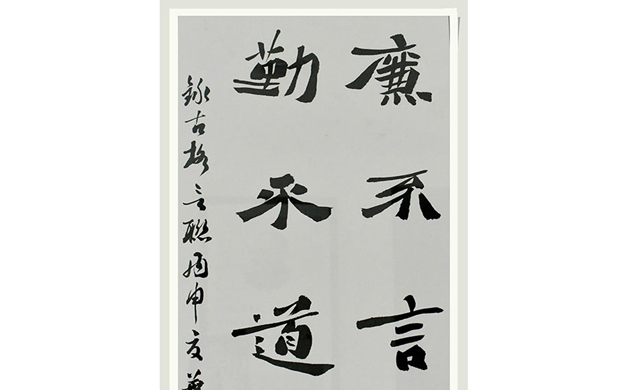 廉不言
勤不道
録古格言聯丙申夏